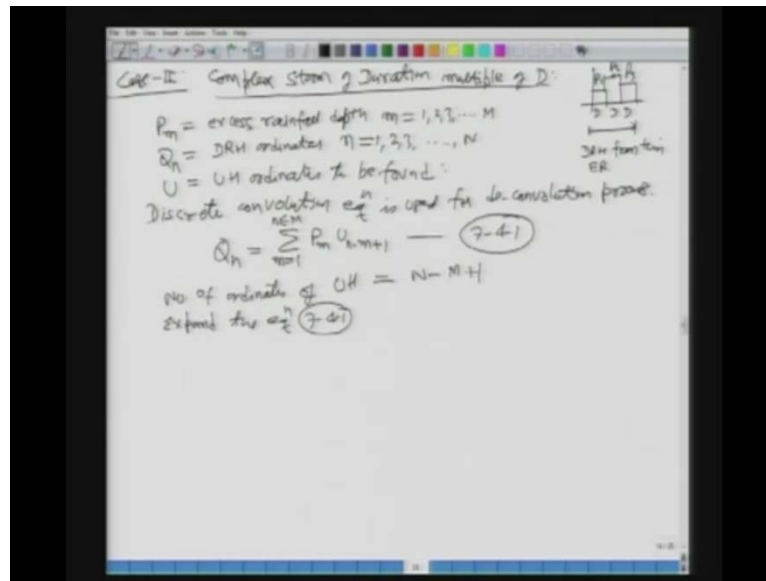 Case-II: Complex Storm of Duration multiple of D:
Pm = excess rainfall depth m = 1,2,3,... M
Qn = DRH ordinates n = 1,2,3, ...., N
U = UH ordinates to be found:
Discrete convolution eqn is used for de-convolution process.
Qn = Σ Pm Un-m+1 — 7-41
n≤M
m=1
No of ordinates of UH = N-M+1
Expand the eqn 7-41
D D D
DRH from this
ER